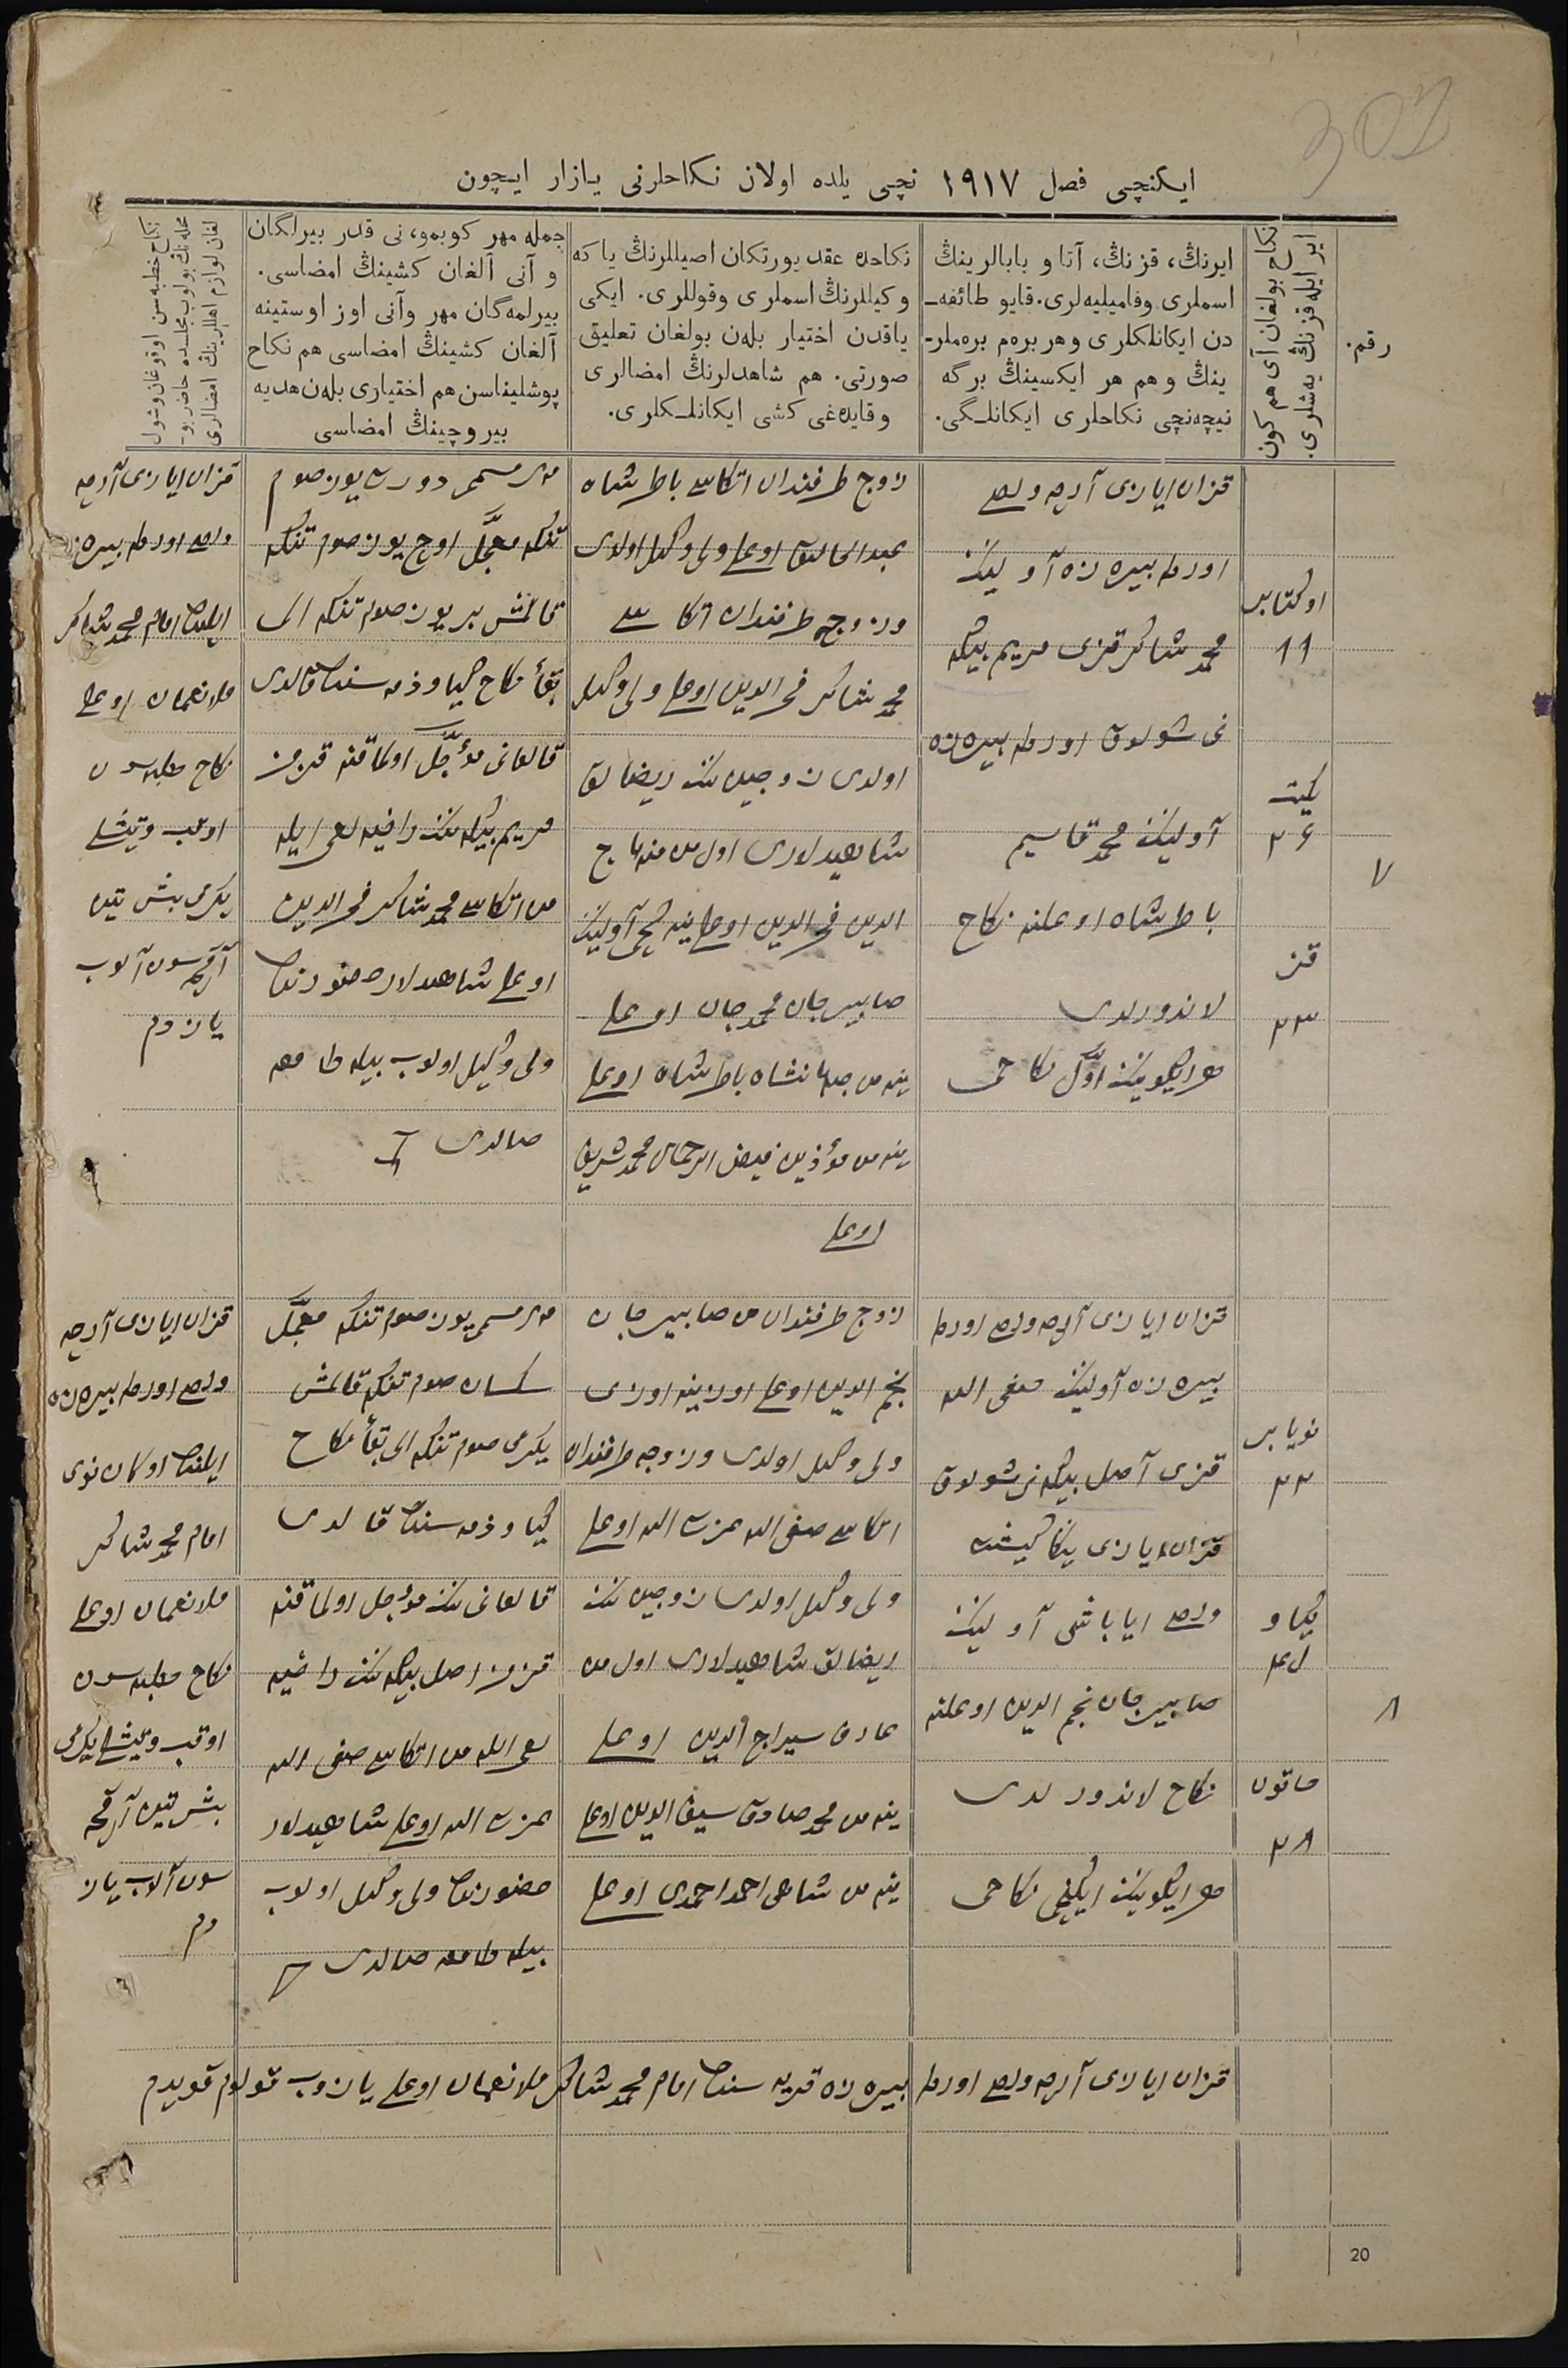 302
ایکنچی فصل ١٩١٧ نچی یلده اولان نکاحلرنی یازار ایچون
رقم.
نکاح بولغان آی هم کون
ایر ایله قزنڭ یه‌شلری.
ایرنڭ، قزنڭ، آتا و بابالرینڭ
اسملری وفامیلیه‌لری. قایو طائفه‌ـ
دن ایکانلکلری و هر بره‌م بره‌ملرـ
ینڭ و هم هر ایکسینڭ برگه
نیچه‌نچی نکاحلری ایکانلـگی.
نکاحده عقد یورتکان اصیللرنڭ یا که
وکیللرنڭ اسملری وقوللری. ایکی
یاقدن اختیار بلەن بولغان تعلیق
صورتی. هم شاهدلرنڭ امضالری
و قایده‌غی کشی ایکانلـکلری.
جمله مهر کوبمو، نی قدر بیرلگان
و آنی آلغان کشینڭ امضاسی.
بیرلمه‌گان مهر وآنی اوز اوستینه
آلغان کشینڭ امضاسی هم نکاح
پوشلیناسن هم اختیاری بلەن هدیه
بیروچینڭ امضاسی
نکاح خطبه‌سن اوقوغان وشول
محله‌نڭ بولوب مجلسده حاضر بوـ
لغان لوازم اهللرینڭ امضالری
٧
اوکتابر
١١
یکیت
٢۶
قز
٢٣
قزان ایازی آرچه ولصے
اورطه بیره زه آولینڭ
محمد شاکر قزی مریم بیکه
نی شولوق اورطه بیره زه
آولینڭ محمد قاسیم
باطرشاه اوعلنه نکاح
لاندورلدی
هر ایکوینڭ اوّل نکاحی
زوج طرفندان اتکاسے باطرشاه
عبدالخالق اوعلے ولی وکیل اولدی
وزوجه طرفندان اتکاسے
محمد شاکر فخرالدین اوعلے ولی وکیل
اولدی زوجین ننڭ ریضالق
شاهیدلاری اول من منهاج
الدین فخرالدین اوعلے ینه کچی آولینڭ
صابیرجان محمدجان اوعلے
ینه من جهانشاه باطرشاه اوعلے
ینه من مؤذین فیض الرحمان محمد شریف
اوعلے
مهر مسمی دورت یوز صوم
تنکه معجّل اوچ یوز صوم تنکه
قالمش بر یوز صوم تنکه الی
بقأ نکاح کیاو ذمه سنده قالدی
قالغانی مؤجّل اولماقنه قزم
مریم بیکه ننڭ راضیه لغی ایله
من اتکاسے محمد شاکر فخرالدین
اوعلے شاهدلار حضورنده
ولی وکیل اولوب بیله طامغه
صالدی
قزان ایازی آرچه
ولصے اورطه بیره زه
ایلنده امام محمد شاکر
ملا نعمان اوعلے
نکاح خطبه سن
اوقوب وتیشلے
یکرمی بش تین
آقچه سن آلوب
یازدم
٨
نویابر
٢٢
کیاو
خاتون
٢٨
قزان ایازی آرچه ولصے اورطه
بیره زه آولینڭ صفی الله
قزی آصل بیکه نی شولوق
قزان ایازی
ولصے ایاباشی آولینڭ
صابیرجان نجم الدین اوعلنه
نکاح لاندورلدی
هر ایکوینڭ ایکنچی نکاحی
زوج طرفندان من صابیرجان
نجم الدین اوعلے اوزینه اوزی
ولی وکیل اولدی وزوجه طرفندان
اتکاسے صفی الله عزت الله اوعلے
ولی وکیل اولدی زوجین ننڭ
ریضالق شاهیدلاری اول من
سیراج الدین اوعلے
ینه من محمد صادق سیف الدین اوعلے
ینه من شاهی احمد احمدی اوعلے
مهر مسمی یوز صوم تنکه معجّل
سکسان صوم تنکه قالمش
یکرمی صوم تنکه الی بقأ نکاح
کیاو ذمه سنده قالدی
قالغانی ننڭ مؤجل اولماقنه
قزم اصل بیکه ننڭ راضیه
لغی ایله من اتکاسے صفی الله
عزت الله اوعلے شاهیدلار
حضورنده ولی وکیل اولوب
بیله طامغه صالدی
قزان ایازی آرچه
ولصے اورطه بیره زه
ایلنده
امام محمد شاکر
ملا نعمان اوعلے
نکاح خطبه سن
اوقوب وتیشلے یکرمی
بش تین آقچه
سن آلوب یاز
دم
قزان ایازی آرچه ولصے اورطه بیره زه قریه سنده امام محمد شاکر ملا نعمان اوعلے یازوب قولوم قویدم
20